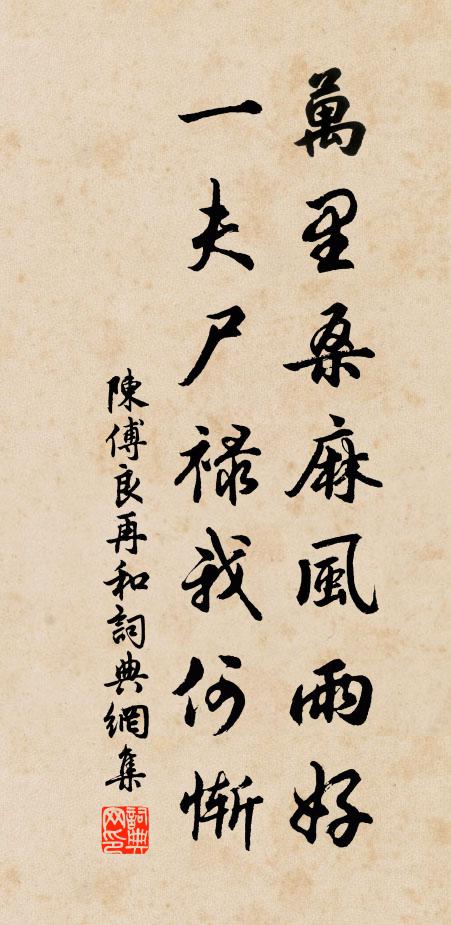 萬里桑麻風雨好
一夫尸禄我何慚
陳傅良再和詞典網集
詞典
网印